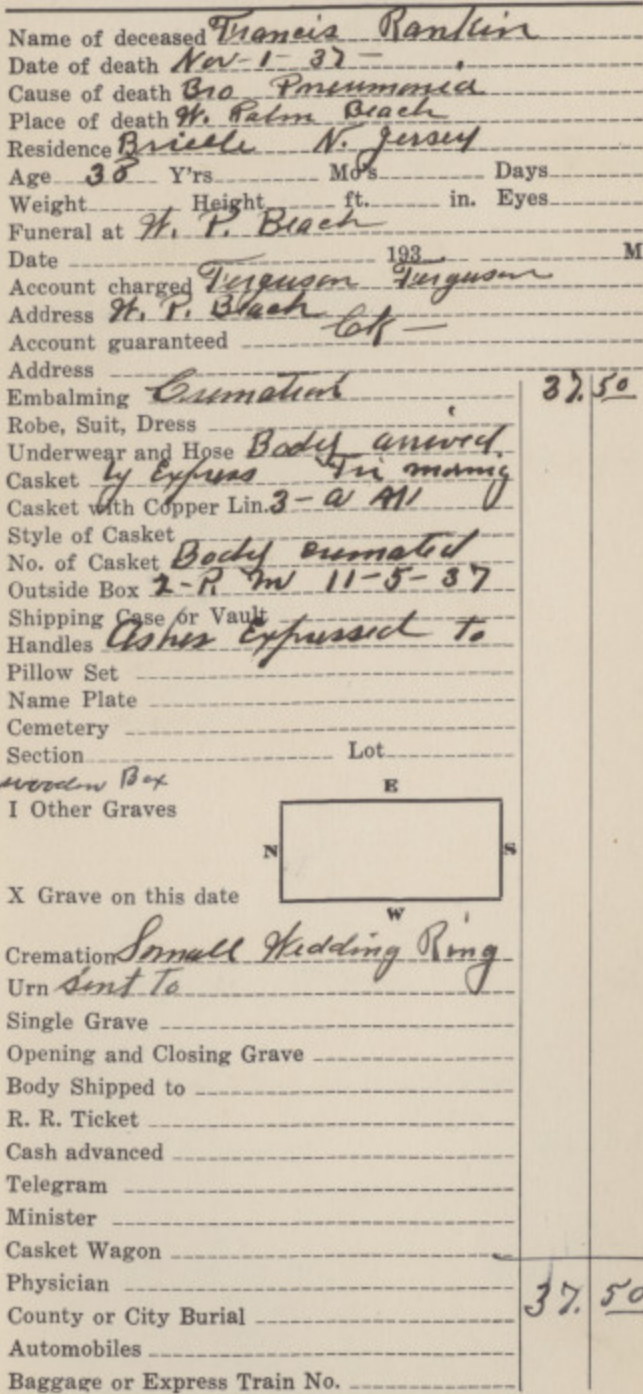 Name of deceased Francis Rankin
Date of death Nov-1-37-
Cause of death Bro Pneumonia
Place of death W. Palm Beach
Residence Brielle N. Jersey
Age 38 Y'rs Mo's Days
Weight Height ft. in. Eyes
Funeral at W. P. Beach
Date 193 M
Account charged Ferguson Ferguson
Address W. P. Beach
Account guaranteed Ck-
Address
Embalming Cremation 37.50
Robe, Suit, Dress
Underwear and Hose Body arrived
Casket by Express Fri morning
Casket with Copper Lin. 3-a M
Style of Casket
No. of Casket Body cremated
Outside Box 2-P. M 11-5-37
Shipping Case or Vault
Handles Ashes Expressed to
Pillow Set
Name Plate
Cemetery
Section Lot
wooden Box
E
I Other Graves
N S
X Grave on this date
W
Cremation Small Wedding Ring
Urn Sent To
Single Grave
Opening and Closing Grave
Body Shipped to
R. R. Ticket
Cash advanced
Telegram
Minister
Casket Wagon
Physician
County or City Burial 37.50
Automobiles
Baggage or Express Train No.